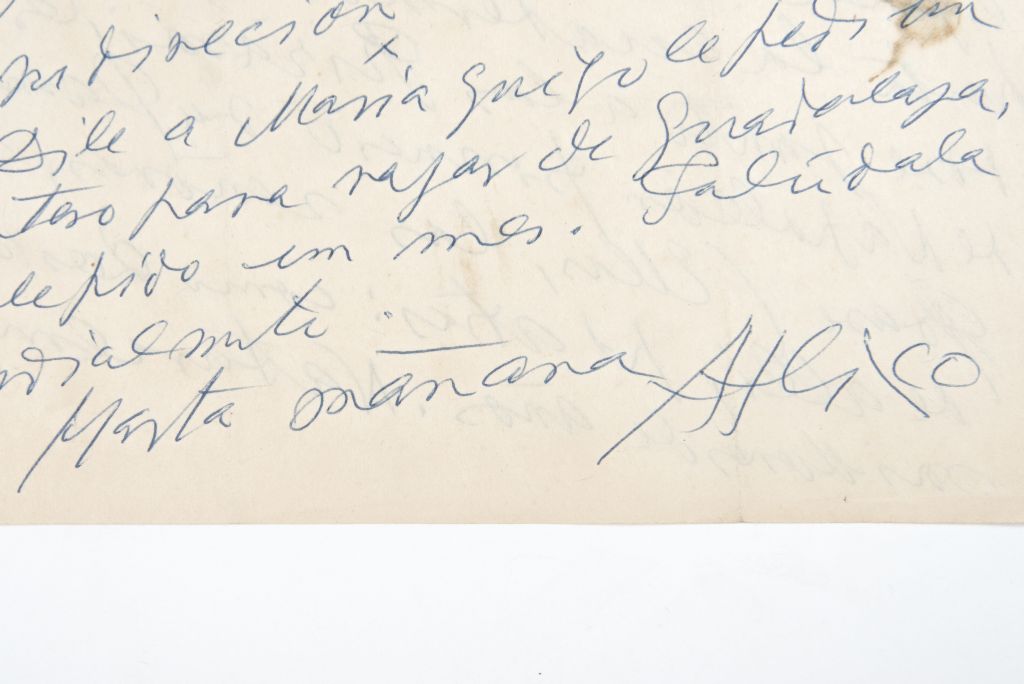 mi direción
Dile a María Griego le pedí un
tero para rajar de Guadalajara,
le pido un mes. Salúdala
dialmente.
Hasta mañana Atl ico